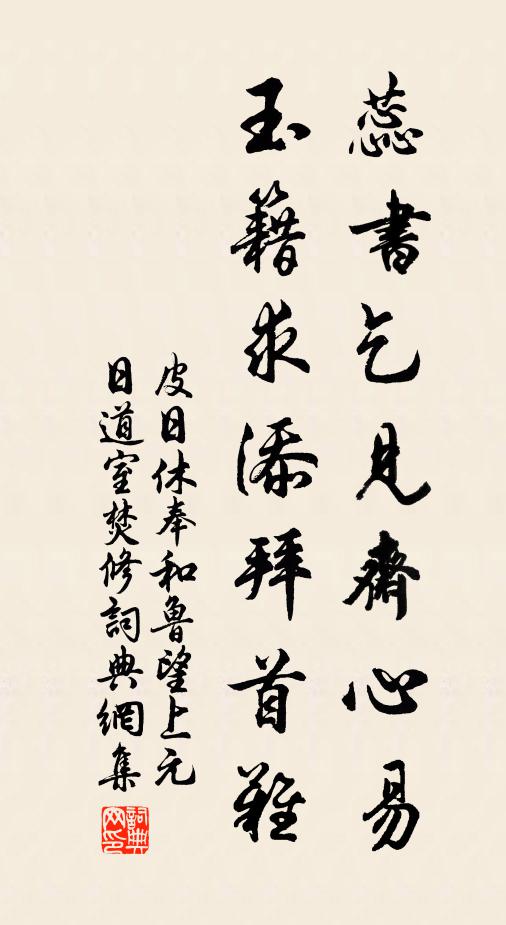 蕊書乞見齋心易
玉籍求添拜首難
皮日休奉和魯望上元
日道室焚修詞典網集
詞典網印